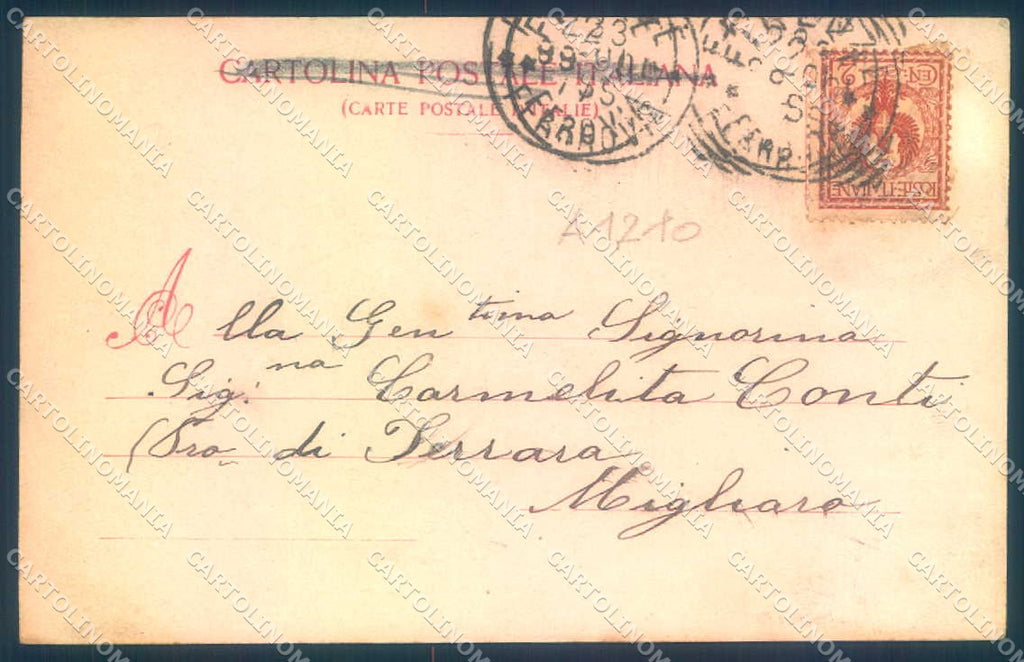 CARTOLINA POSTALE ITALIANA
(CARTE POSTALE D'ITALIE)
FERROVIA
23
FERR
POSTE·ITALIANE
A1210
Alla Gentima Signorina
Sig.na Carmelita Conti
(Pro di Ferrara
Migliaro
CARTOLINOMANIA